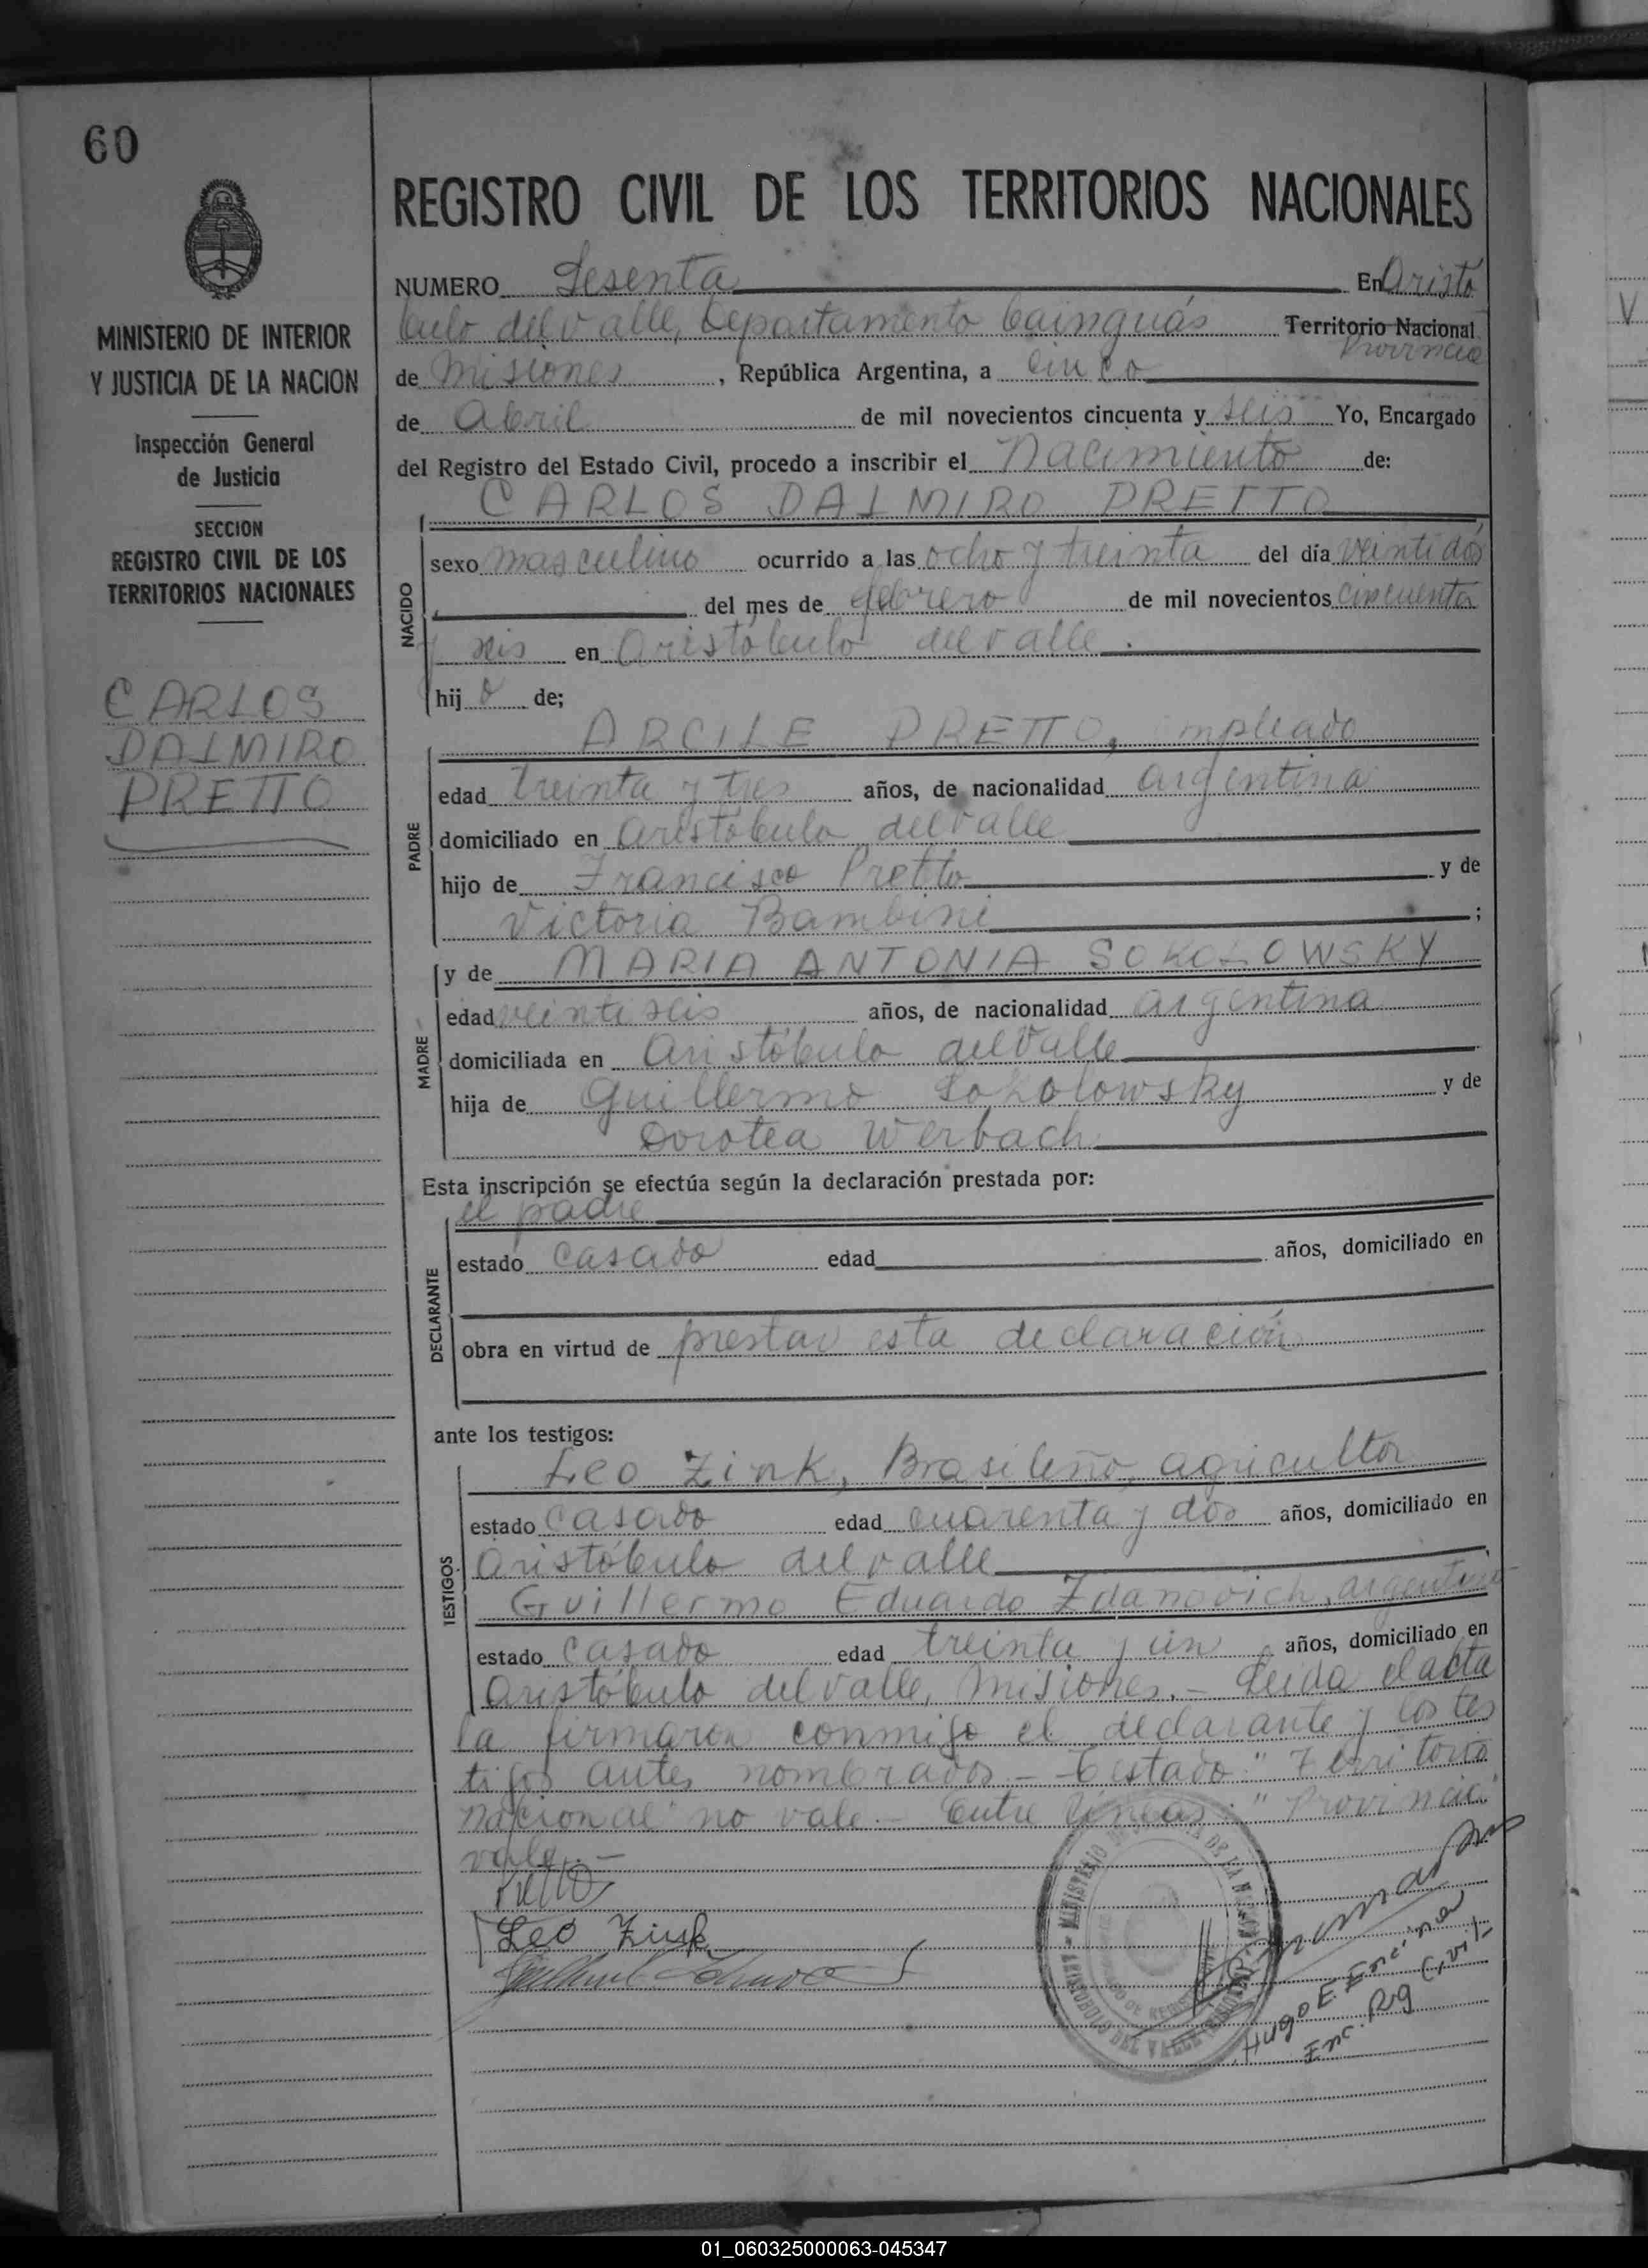 60
MINISTERIO DE INTERIOR
Y JUSTICIA DE LA NACION
Inspección General
de Justicia
SECCION
REGISTRO CIVIL DE LOS
TERRITORIOS NACIONALES
CARLOS
DALMIRO
PRETTO
REGISTRO CIVIL DE LOS TERRITORIOS NACIONALES
NUMERO Sesenta En Aristó
bulo del Valle, Departamento Cainguás Territorio Nacional
Provincia
de Misiones, República Argentina, a cinco
de Abril de mil novecientos cincuenta y seis Yo, Encargado
del Registro del Estado Civil, procedo a inscribir el Nacimiento de:
CARLOS DALMIRO PRETTO
NACIDO
sexo masculino ocurrido a las ocho y treinta del día veintidós
del mes de febrero de mil novecientos cincuenta
y seis en Aristóbulo del Valle.
hijo de;
PADRE
ARCILE PRETTO, empleado
edad treinta y tres años, de nacionalidad argentina
domiciliado en Aristóbulo del Valle
hijo de Francisco Pretto y de
Victoria Bambini;
MADRE
y de MARIA ANTONIA SOKOLOWSKY
edad veintiseis años, de nacionalidad argentina
domiciliada en Aristóbulo del Valle
hija de Guillermo Sokolowsky y de
Dorotea Werbach
Esta inscripción se efectúa según la declaración prestada por:
DECLARANTE
el padre
estado casado edad años, domiciliado en
obra en virtud de prestar esta declaración
ante los testigos:
TESTIGOS
Leo Zink, Brasileño, agricultor
estado casado edad cuarenta y dos años, domiciliado en
Aristóbulo del Valle
Guillermo Eduardo Zdanovich, argentino
estado casado edad treinta y un años, domiciliado en
Aristóbulo del Valle, Misiones.- Leida el acta
la firmaron conmigo el declarante y los tes
tigos antes nombrados.- Testado: "Territorio
nacional" no vale.- Entre líneas: "Provincia"
vale.-
Pretto
Leo Zink
Hugo E. Encina
Enc. Rig Civil
01_060325000063-045347